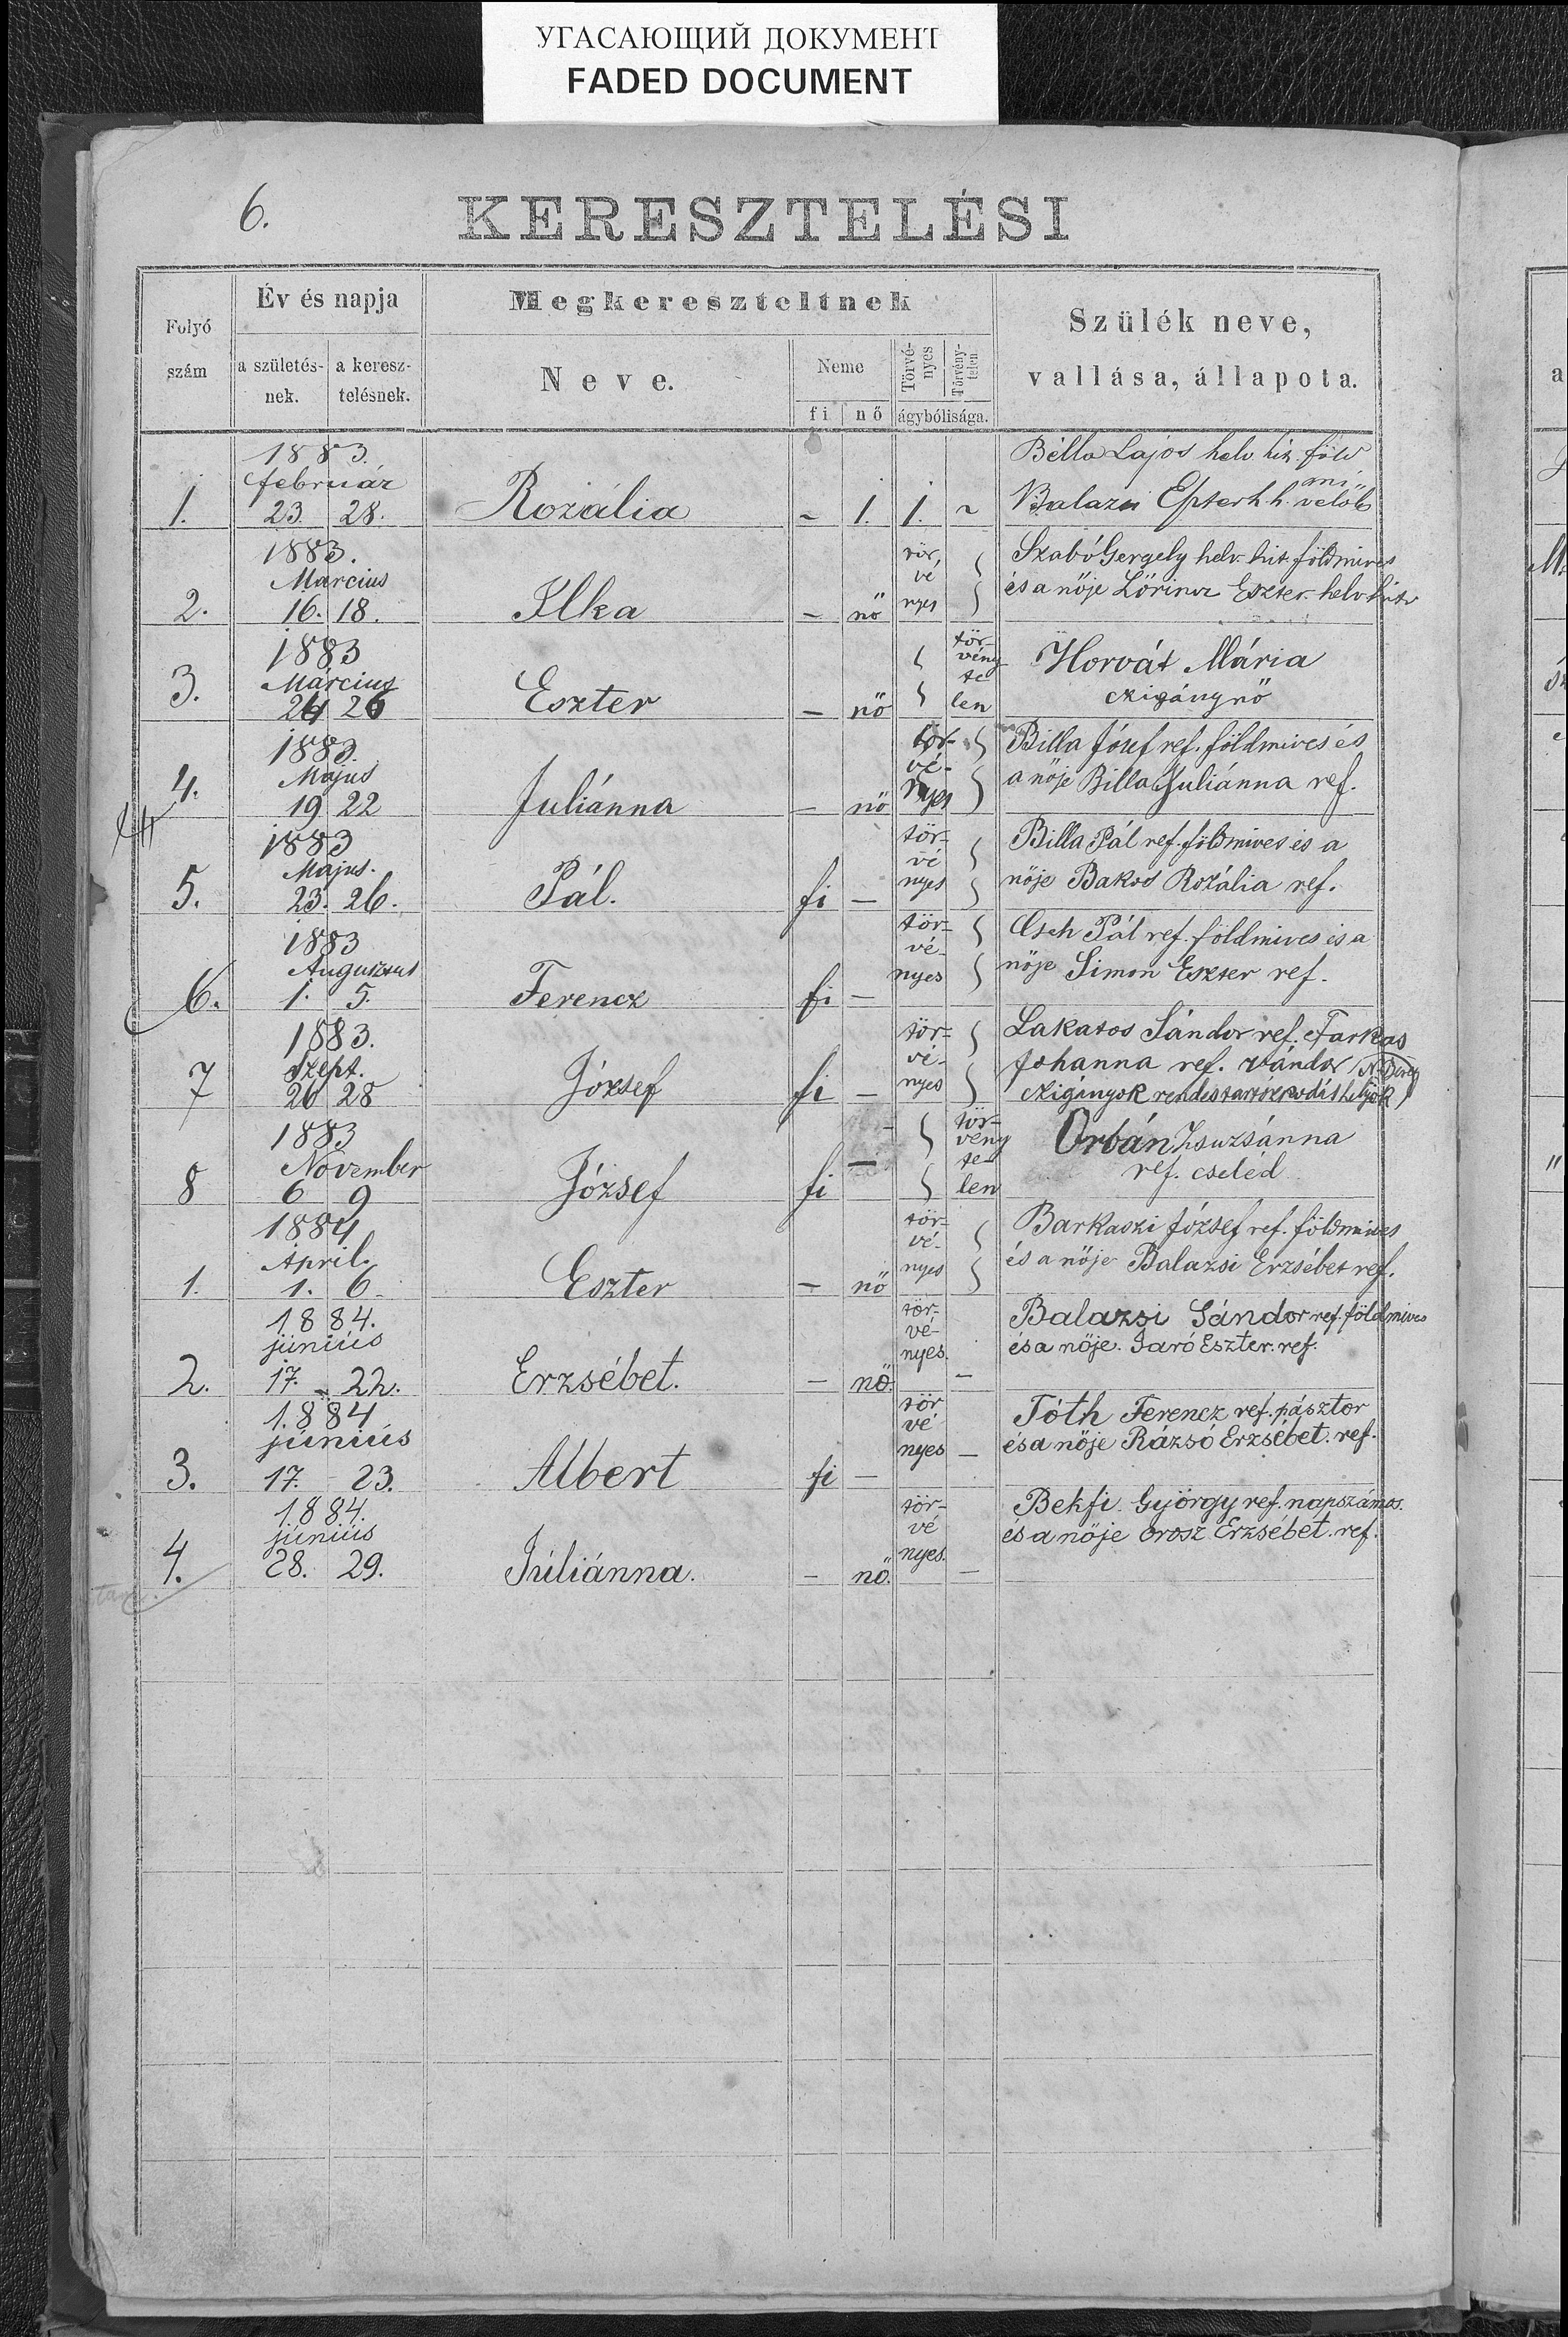 УГАСАЮЩИЙ ДОКУМЕНТ
FADED DOCUMENT
6.
KERESZTELÉSI
Folyó szám
Év és napja
a születés-nek.
a keresz-telésnek.
Megkereszteltnek
Neve.
Neme
fi nő
Törvé-nyes
Törvény-telen
ágybólisága.
Szülék neve,
vallása, állapota.
1883.
február
1. 23. 28. Rozália - 1. 1. ~
Billa Lajos helv. hit. föld
mi
Balazsi Eszter h. h. velők
1883.
Marcius
2. 16. 18. Ilka - nö tör, vé nyes
Szabó Gergely helv. hit. földmives
és a nöje Lőrincz Eszter helv. hitv
1883
Március
3. 24 26 Eszter - nö tör vény te len
Horvát Mária
czigánynö
1883.
Majus
4. 19 22 Juliánna - nö tör- vé- nyes
Billa Józef ref. földmives és
a nöje Billa Juliánna ref.
1883
Majus.
5. 23. 26. Pál. fi - tör- vé nyes
Billa Pál ref. földmives és a
nöje Bakos Rozália ref.
1883
Augusztus
6. 1. 5. Ferencz fi - tör- vé- nyes
Cseh Pál ref. földmives és a
nöje Simon Eszter ref.
1883.
Szept.
7 26 28 József fi - tör- vé- nyes
Lakatos Sándor ref. Farkas
Johanna ref. vándor
czigányok rendes tartózkodás helyök
1883
November
8 6 9 József fi - tör- vény te- len
Orbán Zsuzsánna
ref. cseléd
1884
April.
1. 1. 6. Eszter - nö tör- vé- nyes
Barkaszi József ref. földmives
és a nöje Balazsi Erzsébet ref.
1884.
június
2. 17. - 22. Erzsébet. - nö. tör- vé- nyes. -
Balazsi Sándor ref. földmives
és a nöje. Jaró Eszter. ref.
1884
június
3. 17. - 23. Albert fi - tör vé nyes -
Tóth Ferencz ref. pásztor
és a nöje Rázsó Erzsébet. ref.
1884.
június
4. 28. 29. Júliánna. - nö. tör- vé nyes. -
Bekfi György ref. napszámos.
és a nöje Orosz Erzsébet. ref.